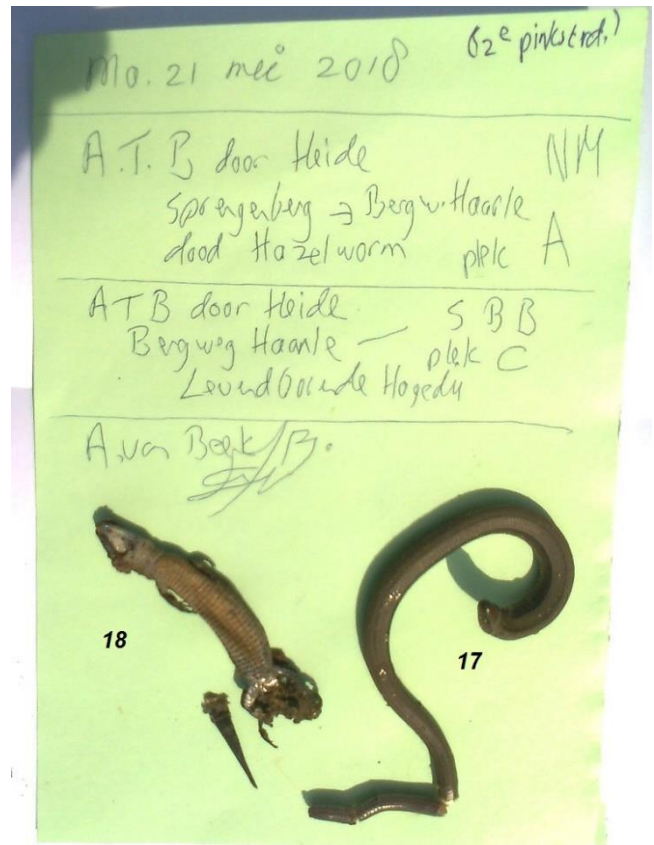 Mo. 21 mei 2018 (2e pinksterd.)
A.T.B door Heide NM
Sprengenberg → Bergw. Haarle
dood Hazelworm plek A
ATB door Heide SBB
Bergweg Haarle — plek C
Levendbarende Hagedis
A. van Beek
18
17